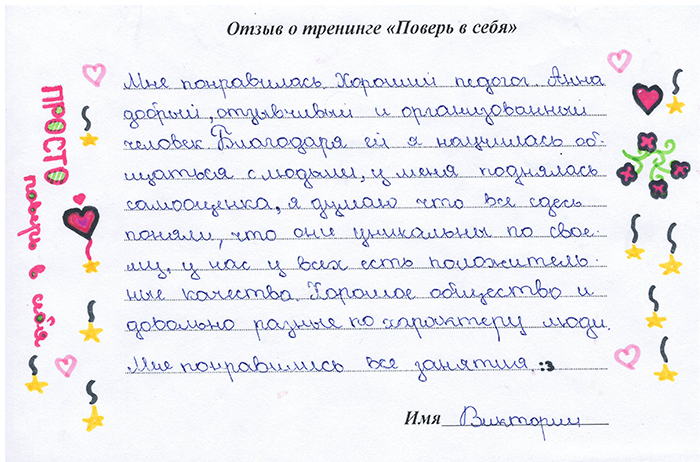 Отзыв о тренинге «Поверь в себя»
Мне понравилась. Хороший педагог. Анна
добрый, отзывчивый и организованный
человек. Благодаря ей я научилась об-
щаться с людьми, у меня поднялась
самооценка, я думаю что все здесь
поняли, что они уникальны по свое-
му, у нас у всех есть положитель-
ные качества. Хорошое общество и
довольно разные по характеру люди.
Мне понравились все занятия. :з
Имя Виктории
ПРОСТО
поверь в себя